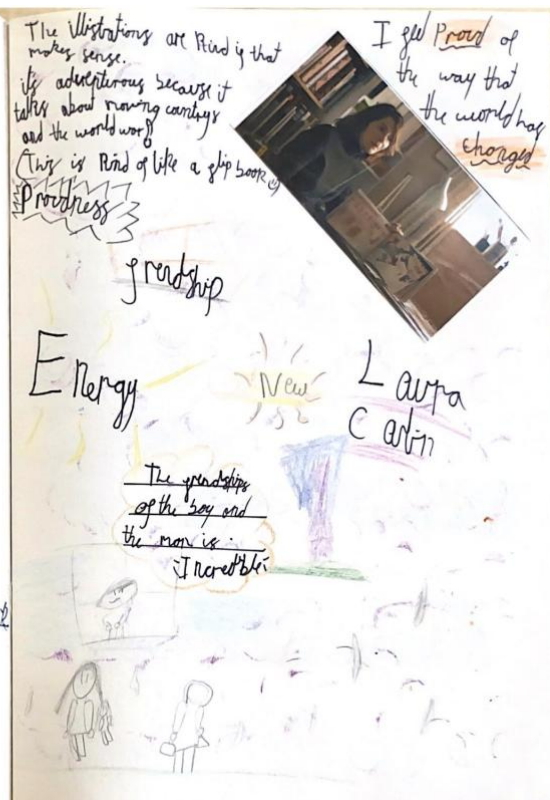 The illistrations are kind if that
makes sense.
it's adverterous because it
talks about moving countrys
and the world war
(This is kind of like a flip book)
Proudness
I feel Proud of
the way that
the world has
changed
frendship
Energy
New
Laura
Carlin
The frendships
of the boy and
the man is.
Incredible